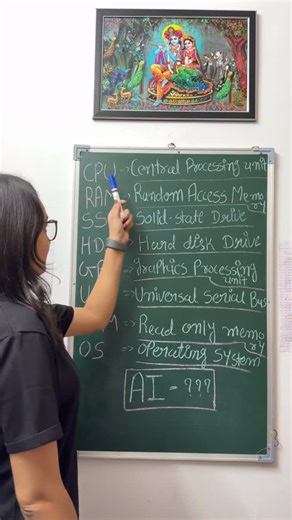 CPU -> Central Processing unit
RAM -> Random Access Memory
SS -> Solid-state Drive
HD -> Hard disk Drive
=> graphics Processing unit
=> Universal Serial Bus
M => Read only memory
OS => operating system
AI = ???